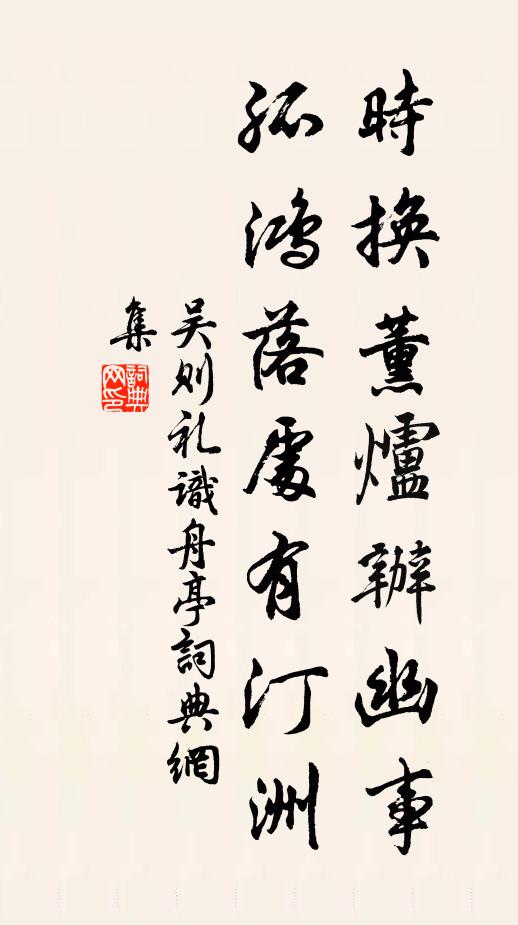 時換薰爐辦幽事
孤鴻落處有汀洲
吴则礼識舟亭詞典網
集
詞典網印